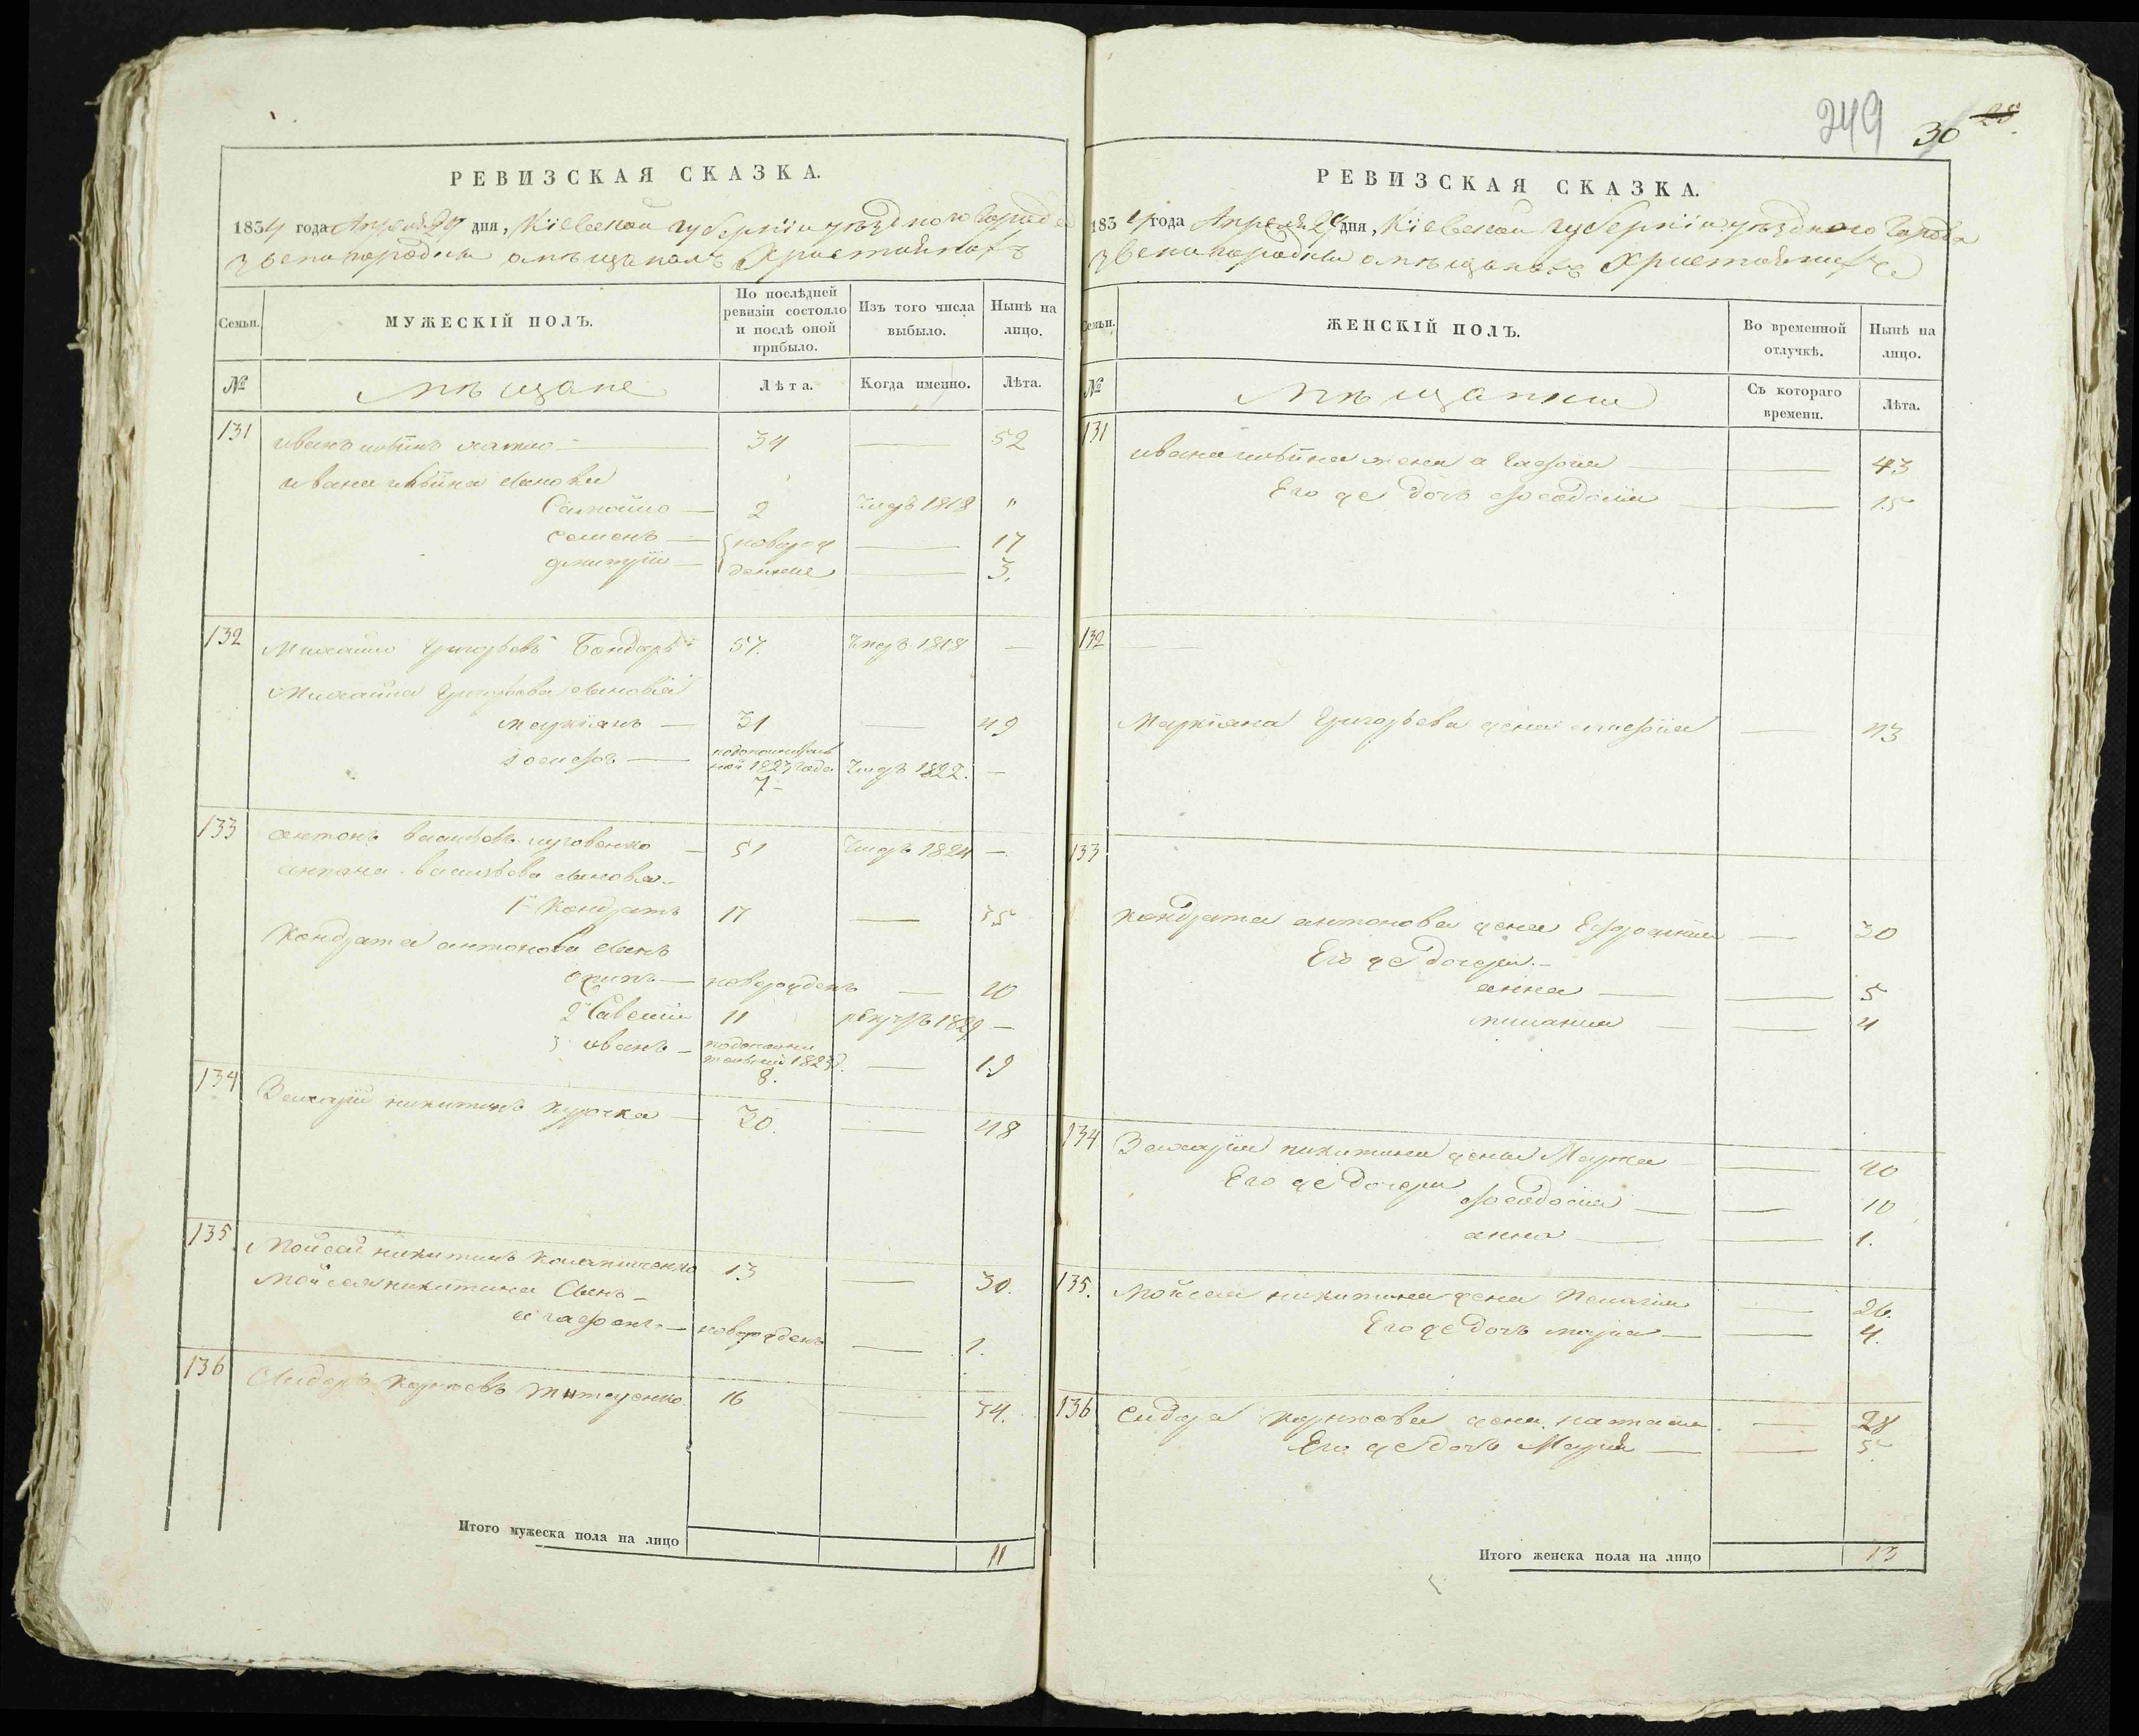 249
30 28.
РЕВИЗСКАЯ СКАЗКА.
1834 года Апреля 24 дня, Кіевской губерніи уѣзднаго Города
Звенигородки о мѣщанахъ Христіянахъ
Семьи.
МУЖЕСКІЙ ПОЛЪ.
По послѣдней ревизіи состояло и послѣ оной прибыло.
Изъ того числа выбыло.
Нынѣ на лицо.
№
мѣщане
Лѣта.
Когда именно.
Лѣта.
131 иванъ 34 — 52
ивана синовья
Самойло — 2 умеръ 1818 "
семенъ — новорож — 17
дмитрій — денные — 3.
132 Михайло Григорьевъ Бондарь 57. умеръ 1818 —
Михайла Григорьева синовья
маркіянъ — 31 — 49
іосифъ — 1823 года 7 умеръ 1822. —
133 антонъ васильевъ — 51 умеръ 1824 —
антона васильева синовья
1й Кондратъ 17 — 35
Кондрата антонова синъ
осипъ — новорожденъ — 10
2 Савелій 11 рекрутъ 1829 —
3 иванъ — 1823 8. — 19
134 Захарій никитинъ курочка — 30. — 48
135 Мойсей никитинъ 13 — 30.
Мойсея никитина Синъ —
агафонъ — новорожденъ — 1.
136 Сидоръ 16 — 34.
Итого мужеска пола на лицо 11
РЕВИЗСКАЯ СКАЗКА.
1834 года Апреля 24 дня, Кіевской губерніи уѣзднаго Города
Звенигородки о мѣщанахъ Христіянахъ
Семьи.
ЖЕНСКІЙ ПОЛЪ.
Во временной отлучкѣ.
Нынѣ на лицо.
№
мѣщанки
Съ котораго времени.
Лѣта.
131 ивана жена агафія — — 43
Его же дочь феодосія — — 15
132 —
Маркіяна Григорьева жена — 43
133
Кондрата антонова жена Ефросинія — 30
Его же дочери. —
анна — — 5
меланія — — 4
134 Захарія никитина жена Марта — 40
Его же дочери
феодосія — — 10
анна — — 1.
135. Мойсея никитина жена Пелагія — 26.
Его же дочь марія — — 4.
136 Сидора жена наталія — 28
Его же дочь Марія — — 5
Итого женска пола на лицо 13